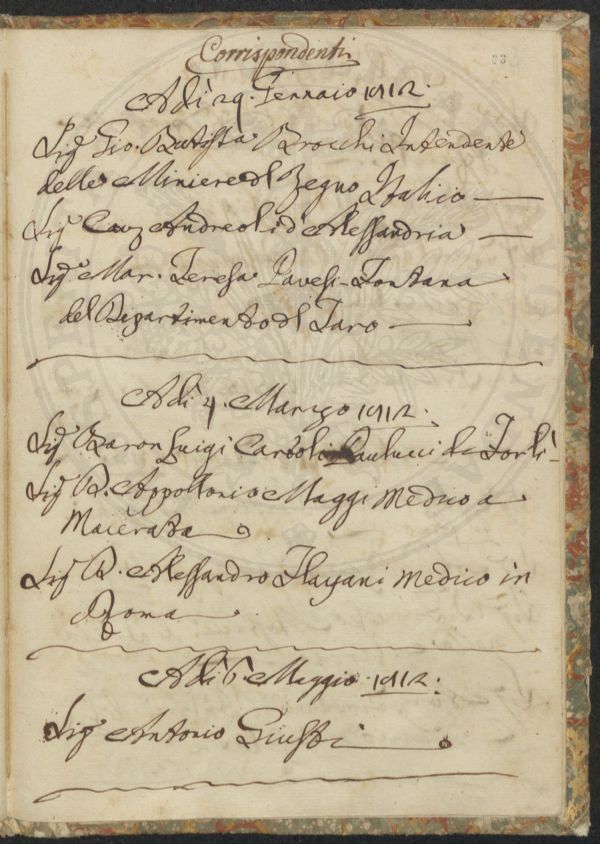 Corrispondenti
83
Adì 29. Gennaio 1812.
Sig.r Gio. Batista Brocchi Intendente
delle Miniere del Regno Italico
Sig.r Cav. Andreoli d'Alessandria
Sig.ra Mar. Teresa Pavesi-Fontana
del Dipartimento del Taro
Adì 4. Marzo 1812.
Sig.r Baron Luigi Paulucci di Forlì
Sig.r D. Appollonio Maggi Medico a
Macerata
Sig.r D. Alessandro Flajani Medico in
Roma
Adì 6. Maggio 1812.
Sig.r Antonio Giusti